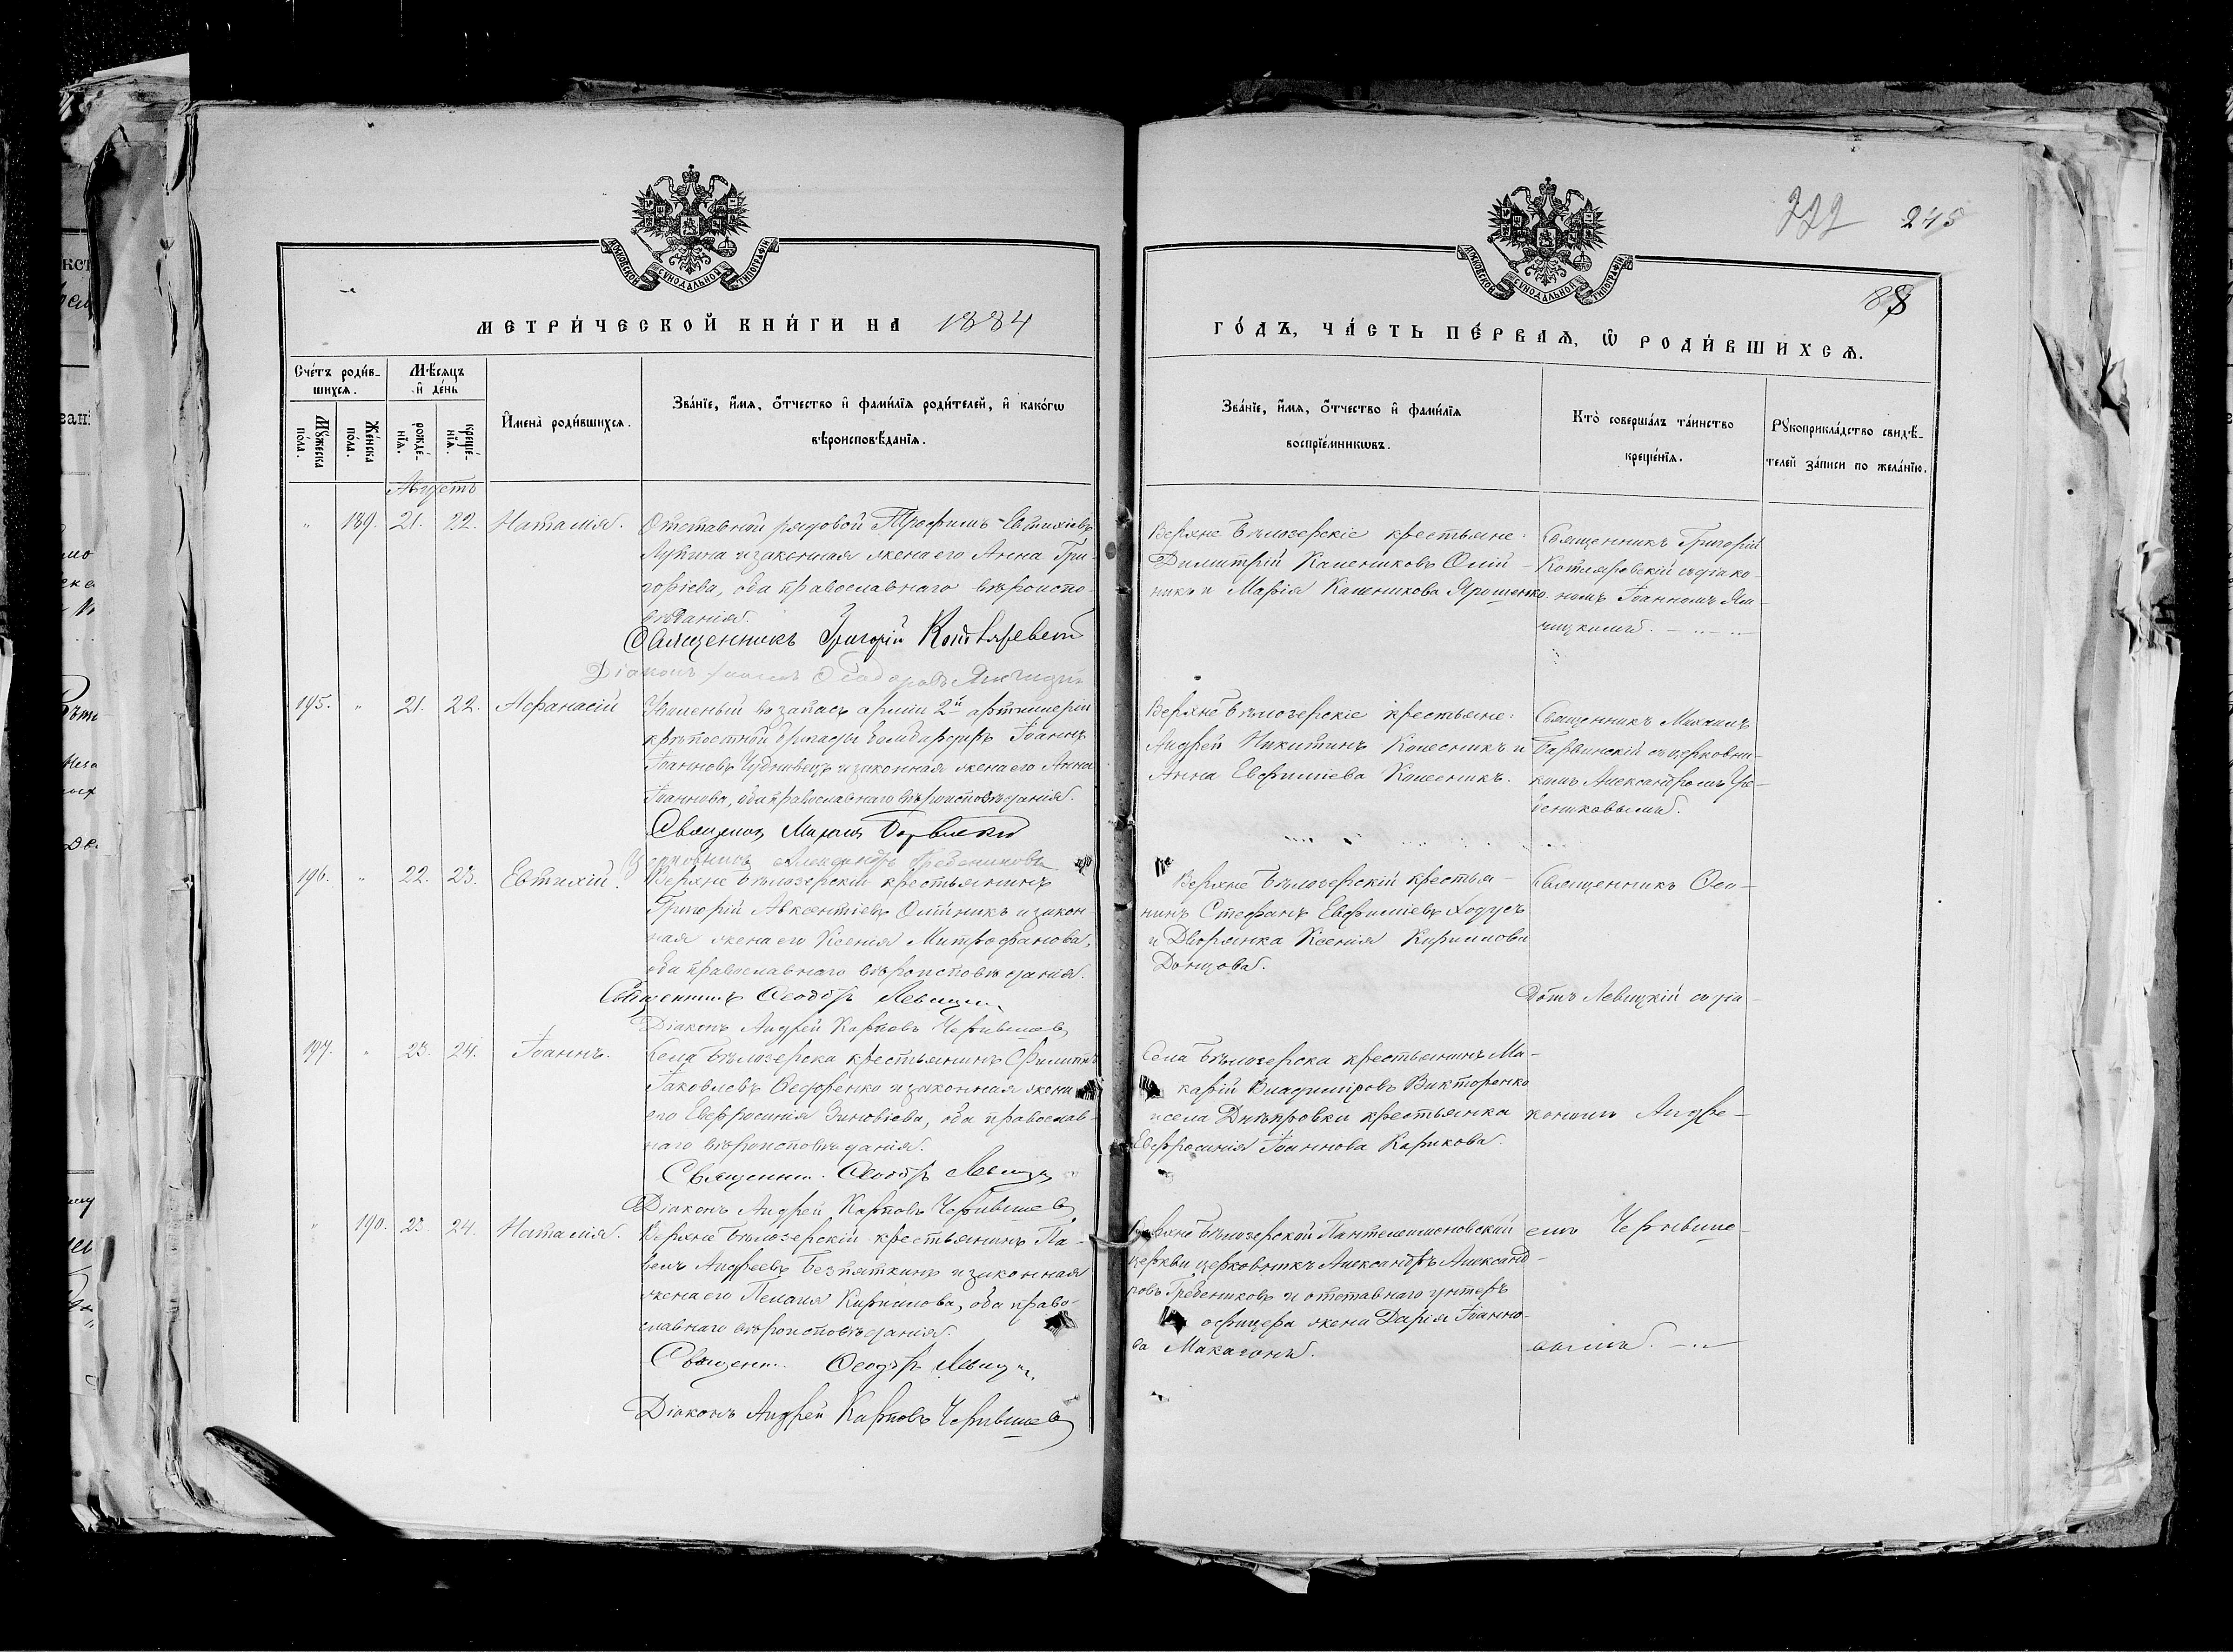 МОСКОВСКОЙ СѴНОДАЛЬНОЙ ТИПОГРАФІИ
МЕТРИ́ЧЕСКОЙ КНИ́ГИ НА 1884
Сче́тъ роди́в-
шихсѧ.
Мѣ́сяцъ
и҆ де́нь
Мꙋ́жеска
по́ла.
Же́нска
по́ла.
рожде́-
нїѧ.
креще́-
нїѧ.
И҆мена̀ роди́вшихсѧ.
Зва́нїе, и҆́мѧ, ѻ҆́тчество и҆ фами́лїѧ роди́телей, и҆ како́гѡ
вѣроисповѣ́данїѧ.
Августъ
" 189. 21. 22. Наталія.
Отставной рядовой Трофимъ Евтихіевъ
Лупина и законная жена его Анна Гри-
горіева, оба православнаго вѣроиспо-
вѣданія.
Священникъ Григорій Котляревскій
Діаконъ
195. " 21. 22. Афанасій
Уволеный въ запасъ арміи 2й артилеріи
крѣпостной бригады бомбардиръ Іоаннъ
Іоанновъ Чуднивецъ и законная жена его Анна
Іоаннова, оба православнаго вѣроисповѣданія.
Священикъ Михаилъ
Церковникъ Александръ Гребениковъ
196. " 22. 23. Евтихій.
Верхне Бѣлозерскій крестьянинъ
Григорій Авксентіевъ Олійникъ и закон
ная жена его Ксенія Митрофанова,
оба православнаго вѣроисповѣданія.
Священникъ Ѳеодоръ Левицкій
Діаконъ Андрей Карповъ Чернышевъ
197. " 23. 24. Іоаннъ.
Села Бѣлозерска крестьянинъ Филиппъ
Іаковлевъ Ѳедоренко и законная жена
его Евфросинія Зиновіева, оба православ-
наго вѣроисповѣданія.
Священник. Ѳеодоръ Левицкій
Діаконъ Андрей Карповъ Чернышевъ
" 190. 23. 24. Наталія.
Верхне Бѣлозерскій крестьянинъ Па-
велъ Андреевъ Безпяткинъ и законная
жена его Пелагія Кирилова, оба право-
славнаго вѣроисповѣданія.
Священн. Ѳеодоръ Левицкій
Діаконъ Андрей Карповъ Чернышевъ
222 245
88
МОСКОВСКОЙ СѴНОДАЛЬНОЙ ТИПОГРАФІИ
ГО́ДЪ, ЧА́СТЬ ПЕ́РВАѦ, Ѽ РОДИ́ВШИХСѦ.
Зва́нїе, и҆́мѧ, ѻ҆́тчество и҆ фами́лїѧ
воспрїе́мникѡвъ.
Кто̀ соверша́лъ та́инство
креще́нїѧ.
Рꙋкоприкла́дство свидѣ́-
телей за́писи по жела́нїю.
Верхне Бѣлозерскіе крестьяне:
Димитрій Калениковъ Олій-
никъ и Марія Каленикова Ярошенко.
Священникъ Григорій
Котляревскій съ діако-
номъ Іоанномъ Ям-
Верхне Бѣлозерскіе крестьяне:
Андрей Никитинъ Колесникъ и
Анна Евфиміева Колесникъ.
Священникъ Михаилъ
съ церковни-
комъ Александромъ Гре-
бениковымъ.
Верхне Бѣлозерскій крестья-
нинъ Стефанъ Евфиміевъ Ходусъ
и Дворянка Ксенія Кириллова
Донцова.
Священникъ Ѳео-
доръ Левицкій съ діа-
Села Бѣлозерска крестьянинъ Ма-
карій Владиміровъ Викторенко
и села Днѣпровки крестьянка
Евфросинія Іоаннова Карикова.
кономъ Андре-
Верхне Бѣлозерской Пантелеимоновской
церкви церковникъ Александръ Александ-
ровъ Гребениковъ и отставнаго унтеръ
офицера жена Дарія Іоанно-
ва Макагонъ.
емъ Черныше-
вымъ.